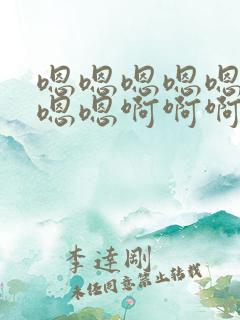 嗯嗯嗯嗯嗯
嗯嗯啊啊啊
李達剛
未经同意禁止转载